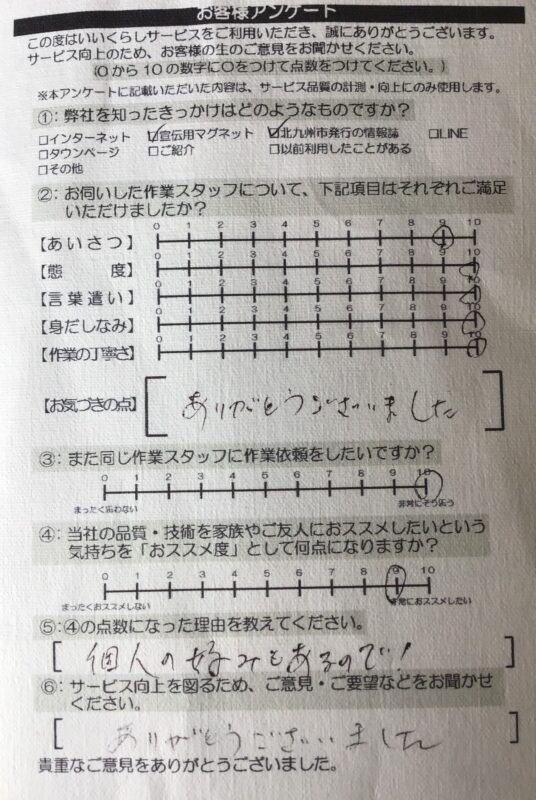 お客様アンケート
この度はいいくらしサービスをご利用いただき、誠にありがとうございます。
サービス向上のため、お客様の生のご意見をお聞かせください。
(0から10の数字に○をつけて点数をつけてください。)
※本アンケートに記載いただいた内容は、サービス品質の計測・向上にのみ使用します。
①：弊社を知ったきっかけはどのようなものですか？
□インターネット ☑宣伝用マグネット ☑北九州市発行の情報誌 □LINE
□タウンページ □ご紹介 □以前利用したことがある
□その他
②：お伺いした作業スタッフについて、下記項目はそれぞれご満足
いただけましたか？
0 1 2 3 4 5 6 7 8 9 10
【あいさつ】
0 1 2 3 4 5 6 7 8 9 10
【態度】
0 1 2 3 4 5 6 7 8 9 10
【言葉遣い】
0 1 2 3 4 5 6 7 8 9 10
【身だしなみ】
0 1 2 3 4 5 6 7 8 9 10
【作業の丁寧さ】
【お気づきの点】 ありがとうございました
③：また同じ作業スタッフに作業依頼をしたいですか？
0 1 2 3 4 5 6 7 8 9 10
まったく思わない 非常にそう思う
④：当社の品質・技術を家族やご友人におススメしたいという
気持ちを「おススメ度」として何点になりますか？
0 1 2 3 4 5 6 7 8 9 10
まったくおススメしない 非常におススメしたい
⑤：④の点数になった理由を教えてください。
個人の好みもあるので！
⑥：サービス向上を図るため、ご意見・ご要望などをお聞かせ
ください。
ありがとうございました
貴重なご意見をありがとうございました。